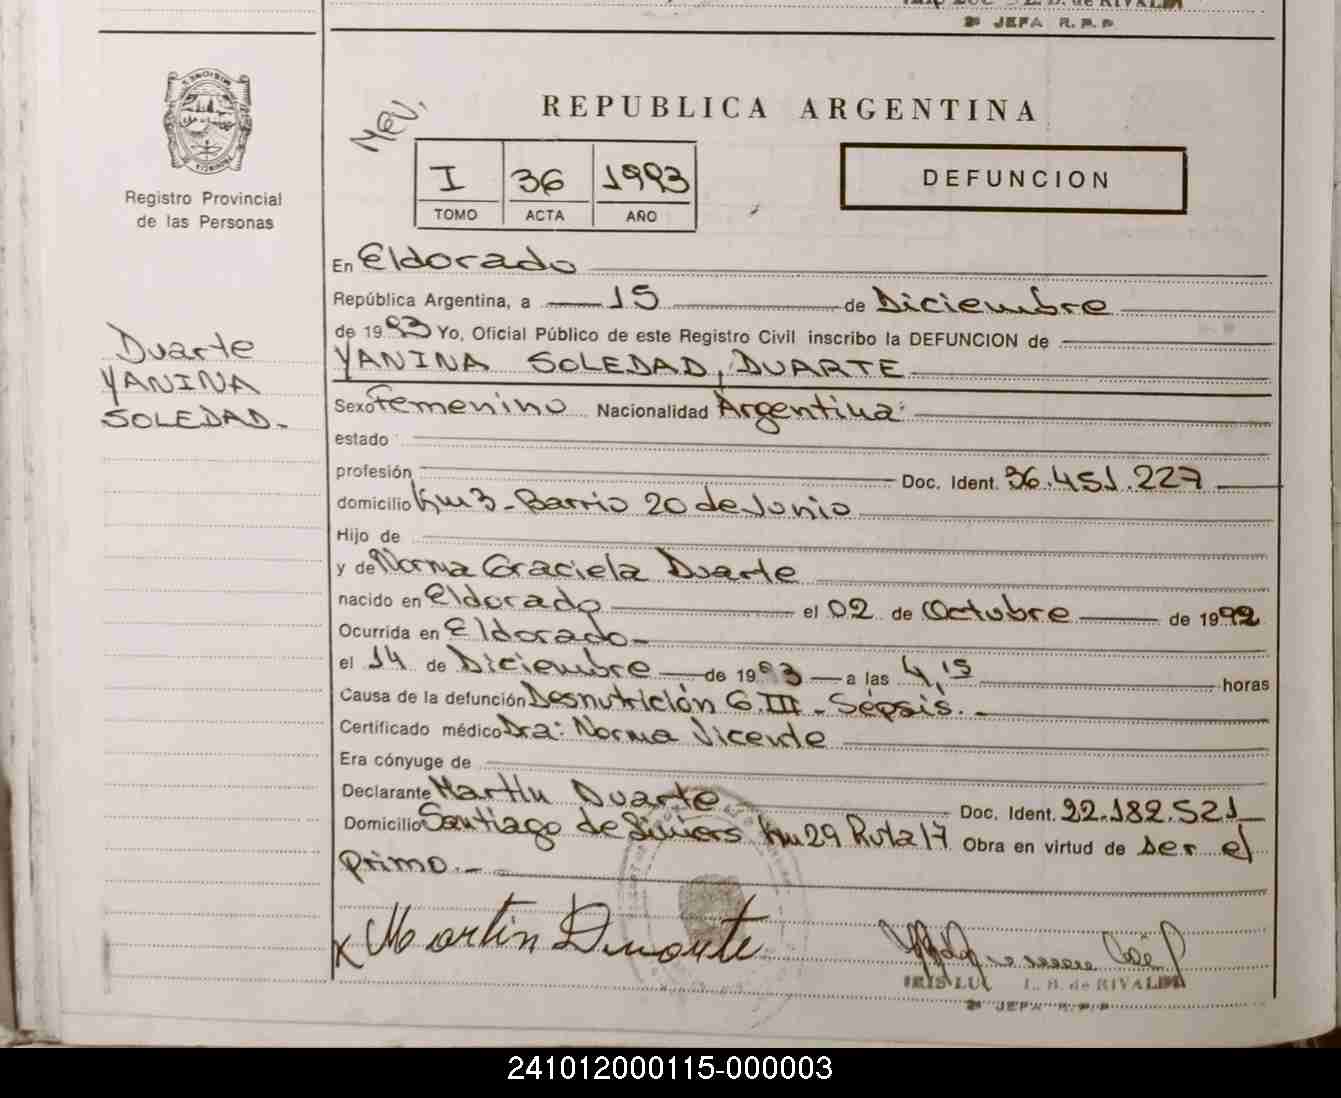 2ª JEFA R.P.P.
Registro Provincial
de las Personas
Duarte
YANINA
SOLEDAD.-
REPUBLICA ARGENTINA
I 36 1993
TOMO ACTA AÑO
DEFUNCION
En Eldorado
República Argentina, a 15 de Diciembre
de 1993 Yo, Oficial Público de este Registro Civil inscribo la DEFUNCION de
YANINA SOLEDAD, DUARTE
Sexo Femenino Nacionalidad Argentina
estado
profesión Doc. Ident. 36.451.227
domicilio Km 3 - Barrio 20 de Junio
Hijo de
y de Norma Graciela Duarte
nacido en Eldorado el 02 de Octubre de 1992
Ocurrida en Eldorado-
el 14 de Diciembre de 1993 a las 4,15 horas
Causa de la defunción Desnutrición G.III - Sepsis.-
Certificado médico Dra: Norma Vicente
Era cónyuge de
Declarante Martin Duarte Doc. Ident. 22.182.521
Domicilio Santiago de Liniers Km 29 Ruta 17 Obra en virtud de Ser el
primo.-
x Martin Duarte
IRIS L. B. de RIVALDI
2ª JEFA R.P.P.
241012000115-000003